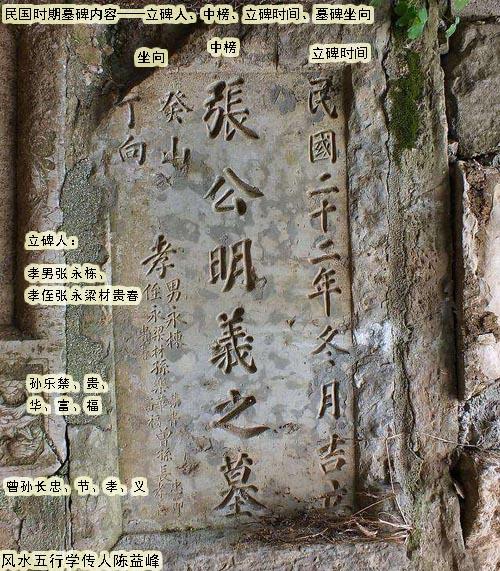 民国时期墓碑内容——立碑人、中榜、立碑时间、墓碑坐向
坐向
中榜
立碑时间
民國二十二年冬月吉立
張公明義之墓
癸山
丁向
孝
男永棟
侄永梁材
孫
曾孫長
立碑人：
孝男张永栋、
孝侄张永梁材贵春
孙乐禁、贵、
华、富、福
曾孙长忠、节、孝、义
风水五行学传人陈益峰